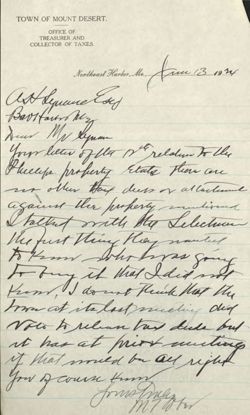 TOWN OF MOUNT DESERT.
OFFICE OF
TREASURER AND
COLLECTOR OF TAXES.
Northeast Harbor, Me. June 13 1934
A H Lynam Esq
Bar Harbor Me
Dear Mr Lynam
Your letter of the 12th relative to the
Phillips property taxes there are
no other tax deeds or attachment
against the property mentioned
I talked with the Selectmen
the first thing they wanted
to know who was going
to buy it that I did not
know, I do not think that the
town at its last meeting did
vote to release tax deeds but
it has at prior meetings
if that would be all right
You of course know
Yours truly